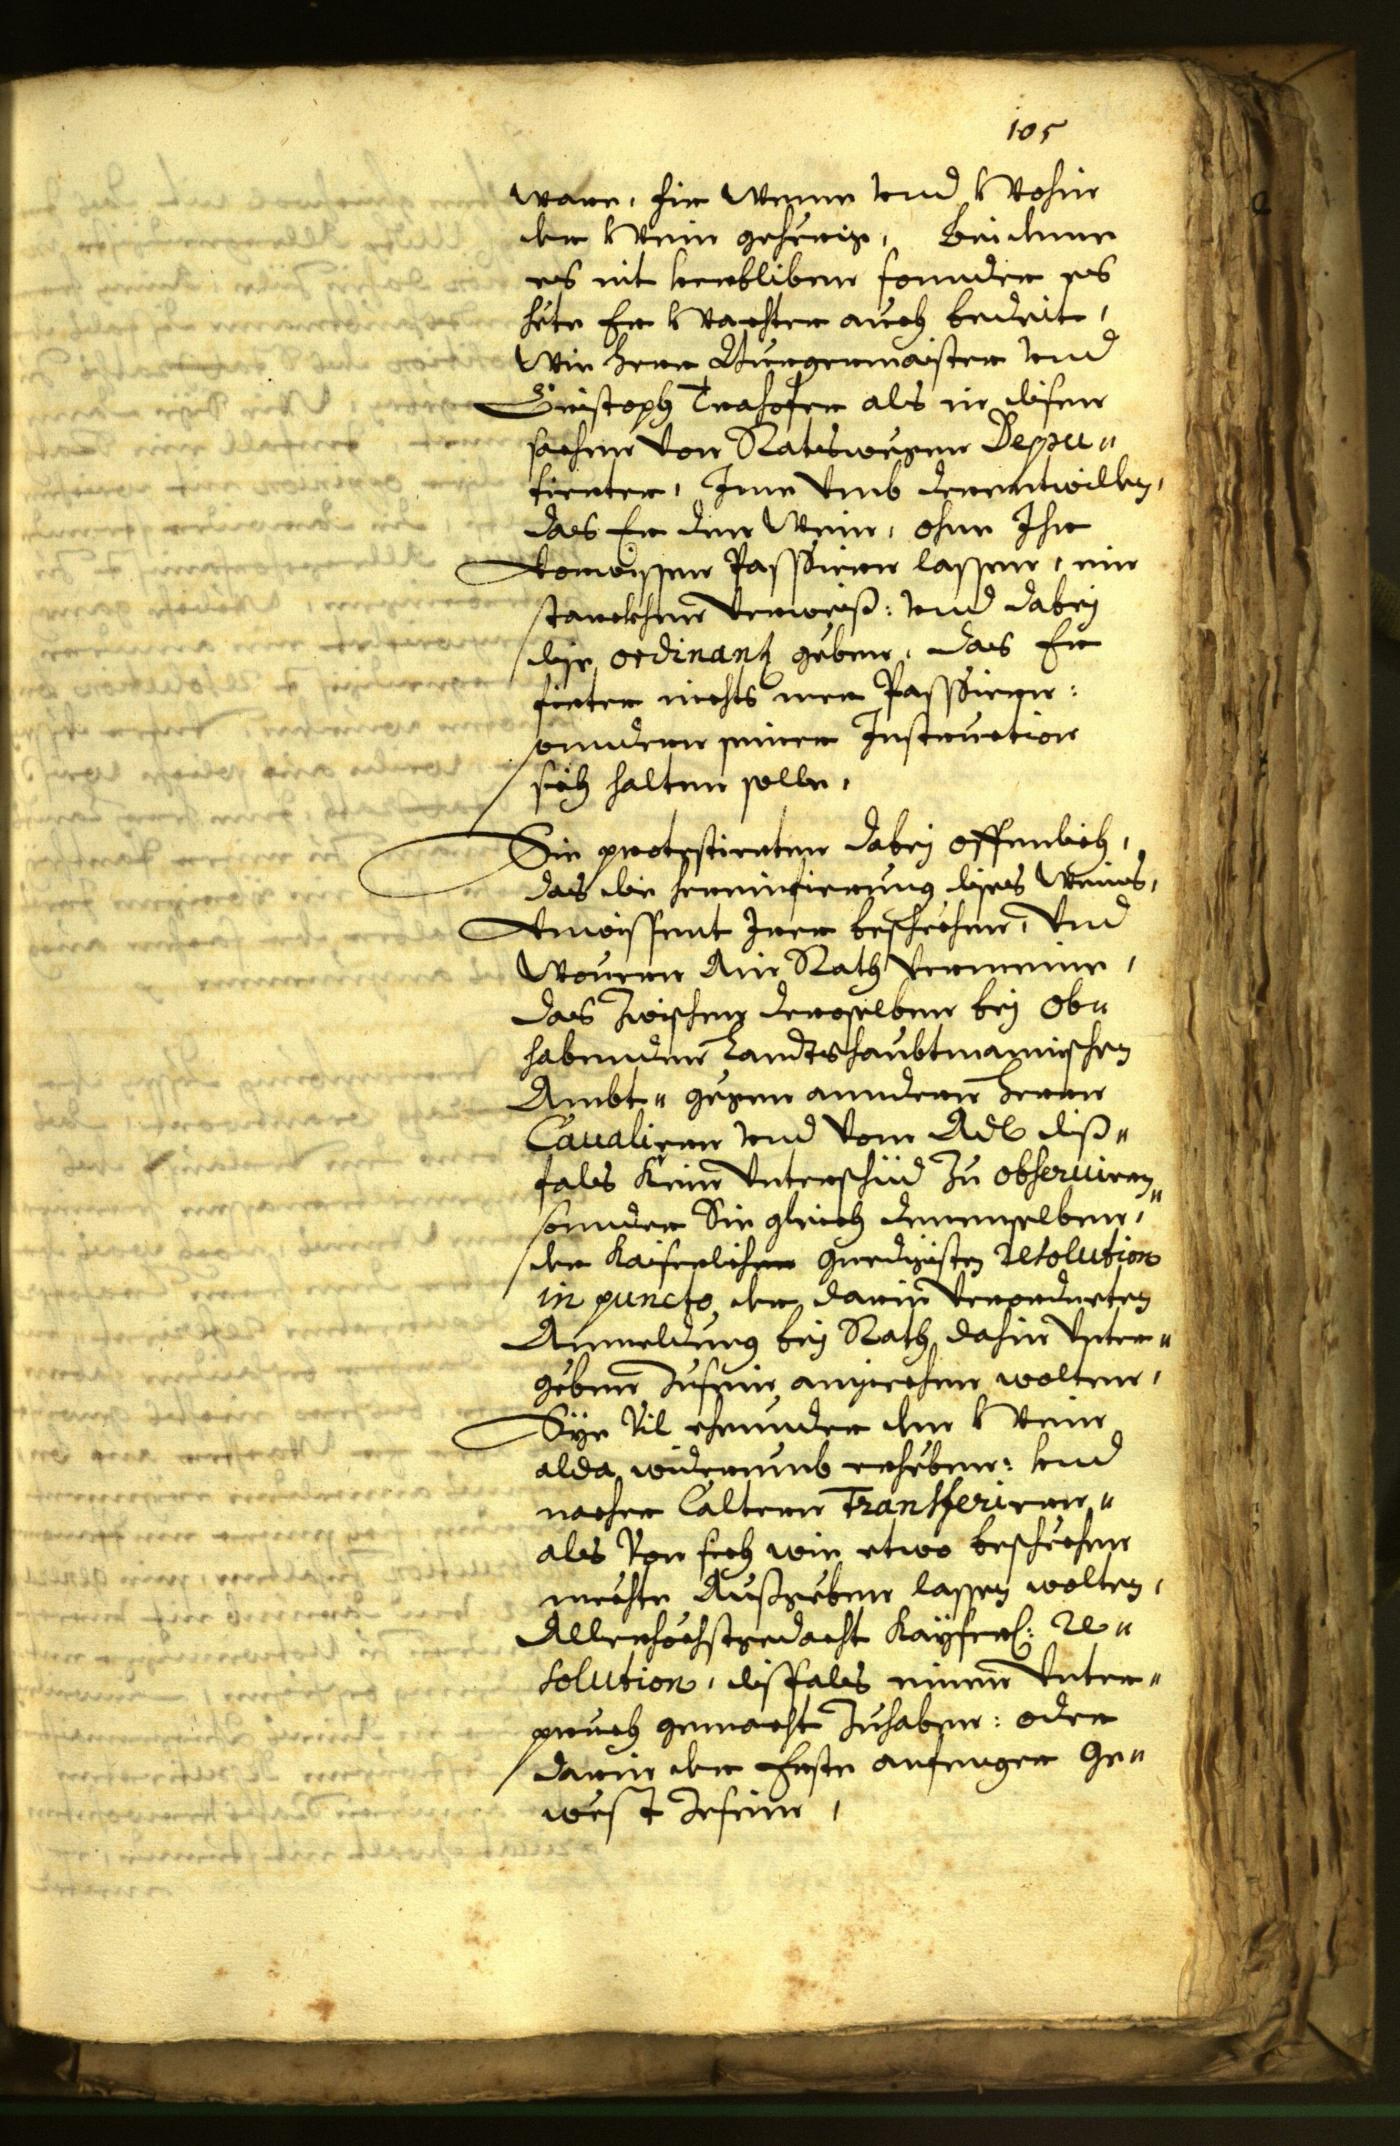 105
ware, hin Wenn vnd Wohin
der Wein gehörig, Bei deme
es nit verbliben sonnder es
hete Er Wachter auch bedeit,
Wie herr Burgermaister vnd
Cristoph Trahofer als in disen
sachen von Ratswegen Depu"
tierter, Jme vmb derentwillen,
das Er den Wein, ohne Jhr
vorwissen Passieren lassen, ein
starckhen verweiß: vnd dabeÿ
dise ordinantz geben, das Er
firter nichts mer Passieren:
sonndern seiner Instruction
sich halten solle,
Sie protestierten dabeÿ offentlich,
das die hereinfierung dises Weins,
vnwissent Jrer beschechen, vnd
Ain Rath vermeine,
das zwischen deroselben beÿ ob"
habenden Landtshaubtmannischen
Ambt" gegen anndern herren
Caualiern vnd vom Adl diß"
fals kein vnterschid zu obseruiren,
sonnder Sie gleich denenselben,"
der Kaiserlichen gnedigisten Resolution
in puncto, der darin verordneten
Anmeldung beÿ Rath, dahin vnter"
geben zusein, ansechen wolten,
Sÿe vil ehennder den Wein
alda widerumb erheben: vnd
nacher Caltern Transferieren"
als von sich wie etwo beschechen
mechte Außgeben lassen wolten,
Allerhöchstgedacht Kaÿserl: Re"
solution, dißfals einen vnter"
pruch gemacht zuhaben: oder
darin der Erste anfenger ge"
west zesein,